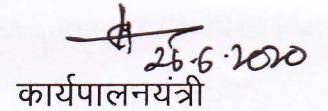 26.6.2020
कार्यपालनयंत्री